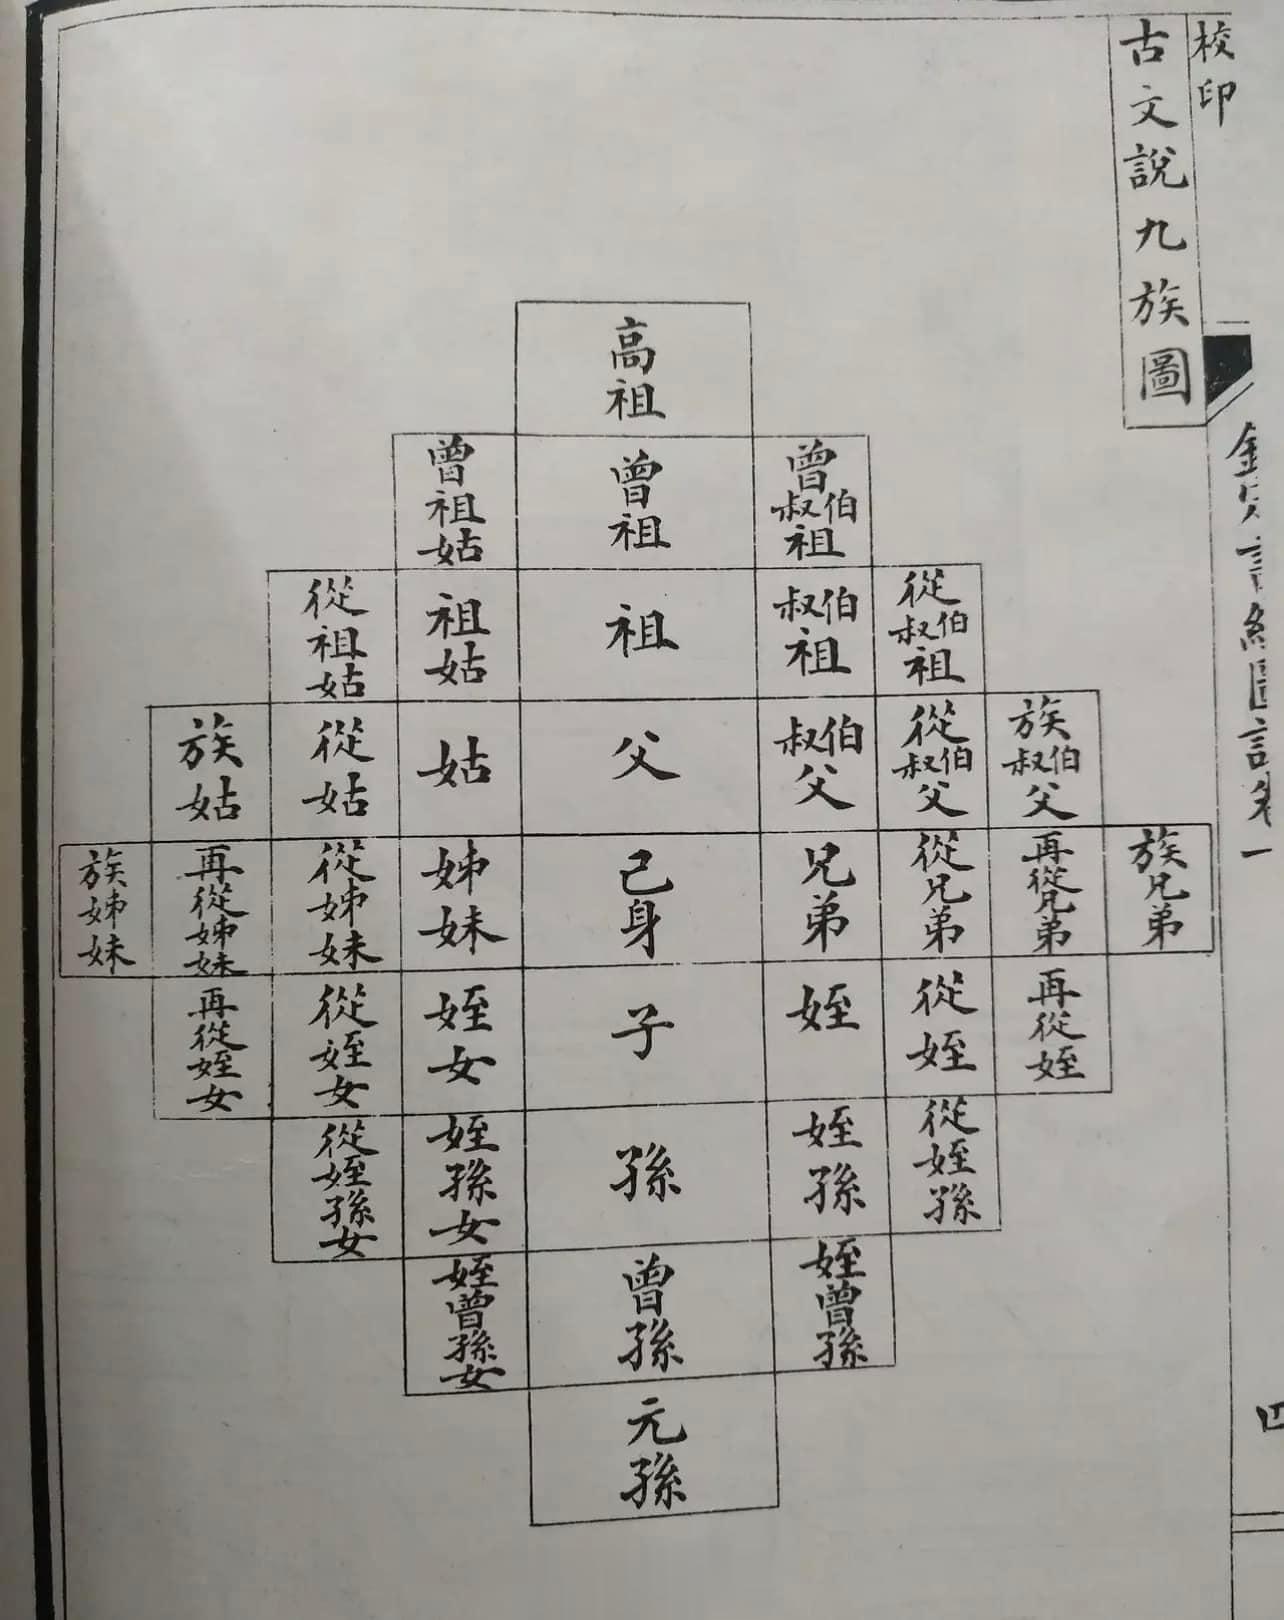 校印
古文說九族圖
高祖
曾伯叔祖
曾祖
曾祖姑
從伯叔祖
伯叔祖
祖
祖姑
從祖姑
族伯叔父
從伯叔父
伯叔父
父
姑
從姑
族姑
族兄弟
再從兄弟
從兄弟
兄弟
己身
姊妹
從姊妹
再從姊妹
族姊妹
再從姪
從姪
姪
子
姪女
從姪女
再從姪女
從姪孫
姪孫
孫
姪孫女
從姪孫女
姪曾孫
曾孫
姪曾孫女
元孫
四